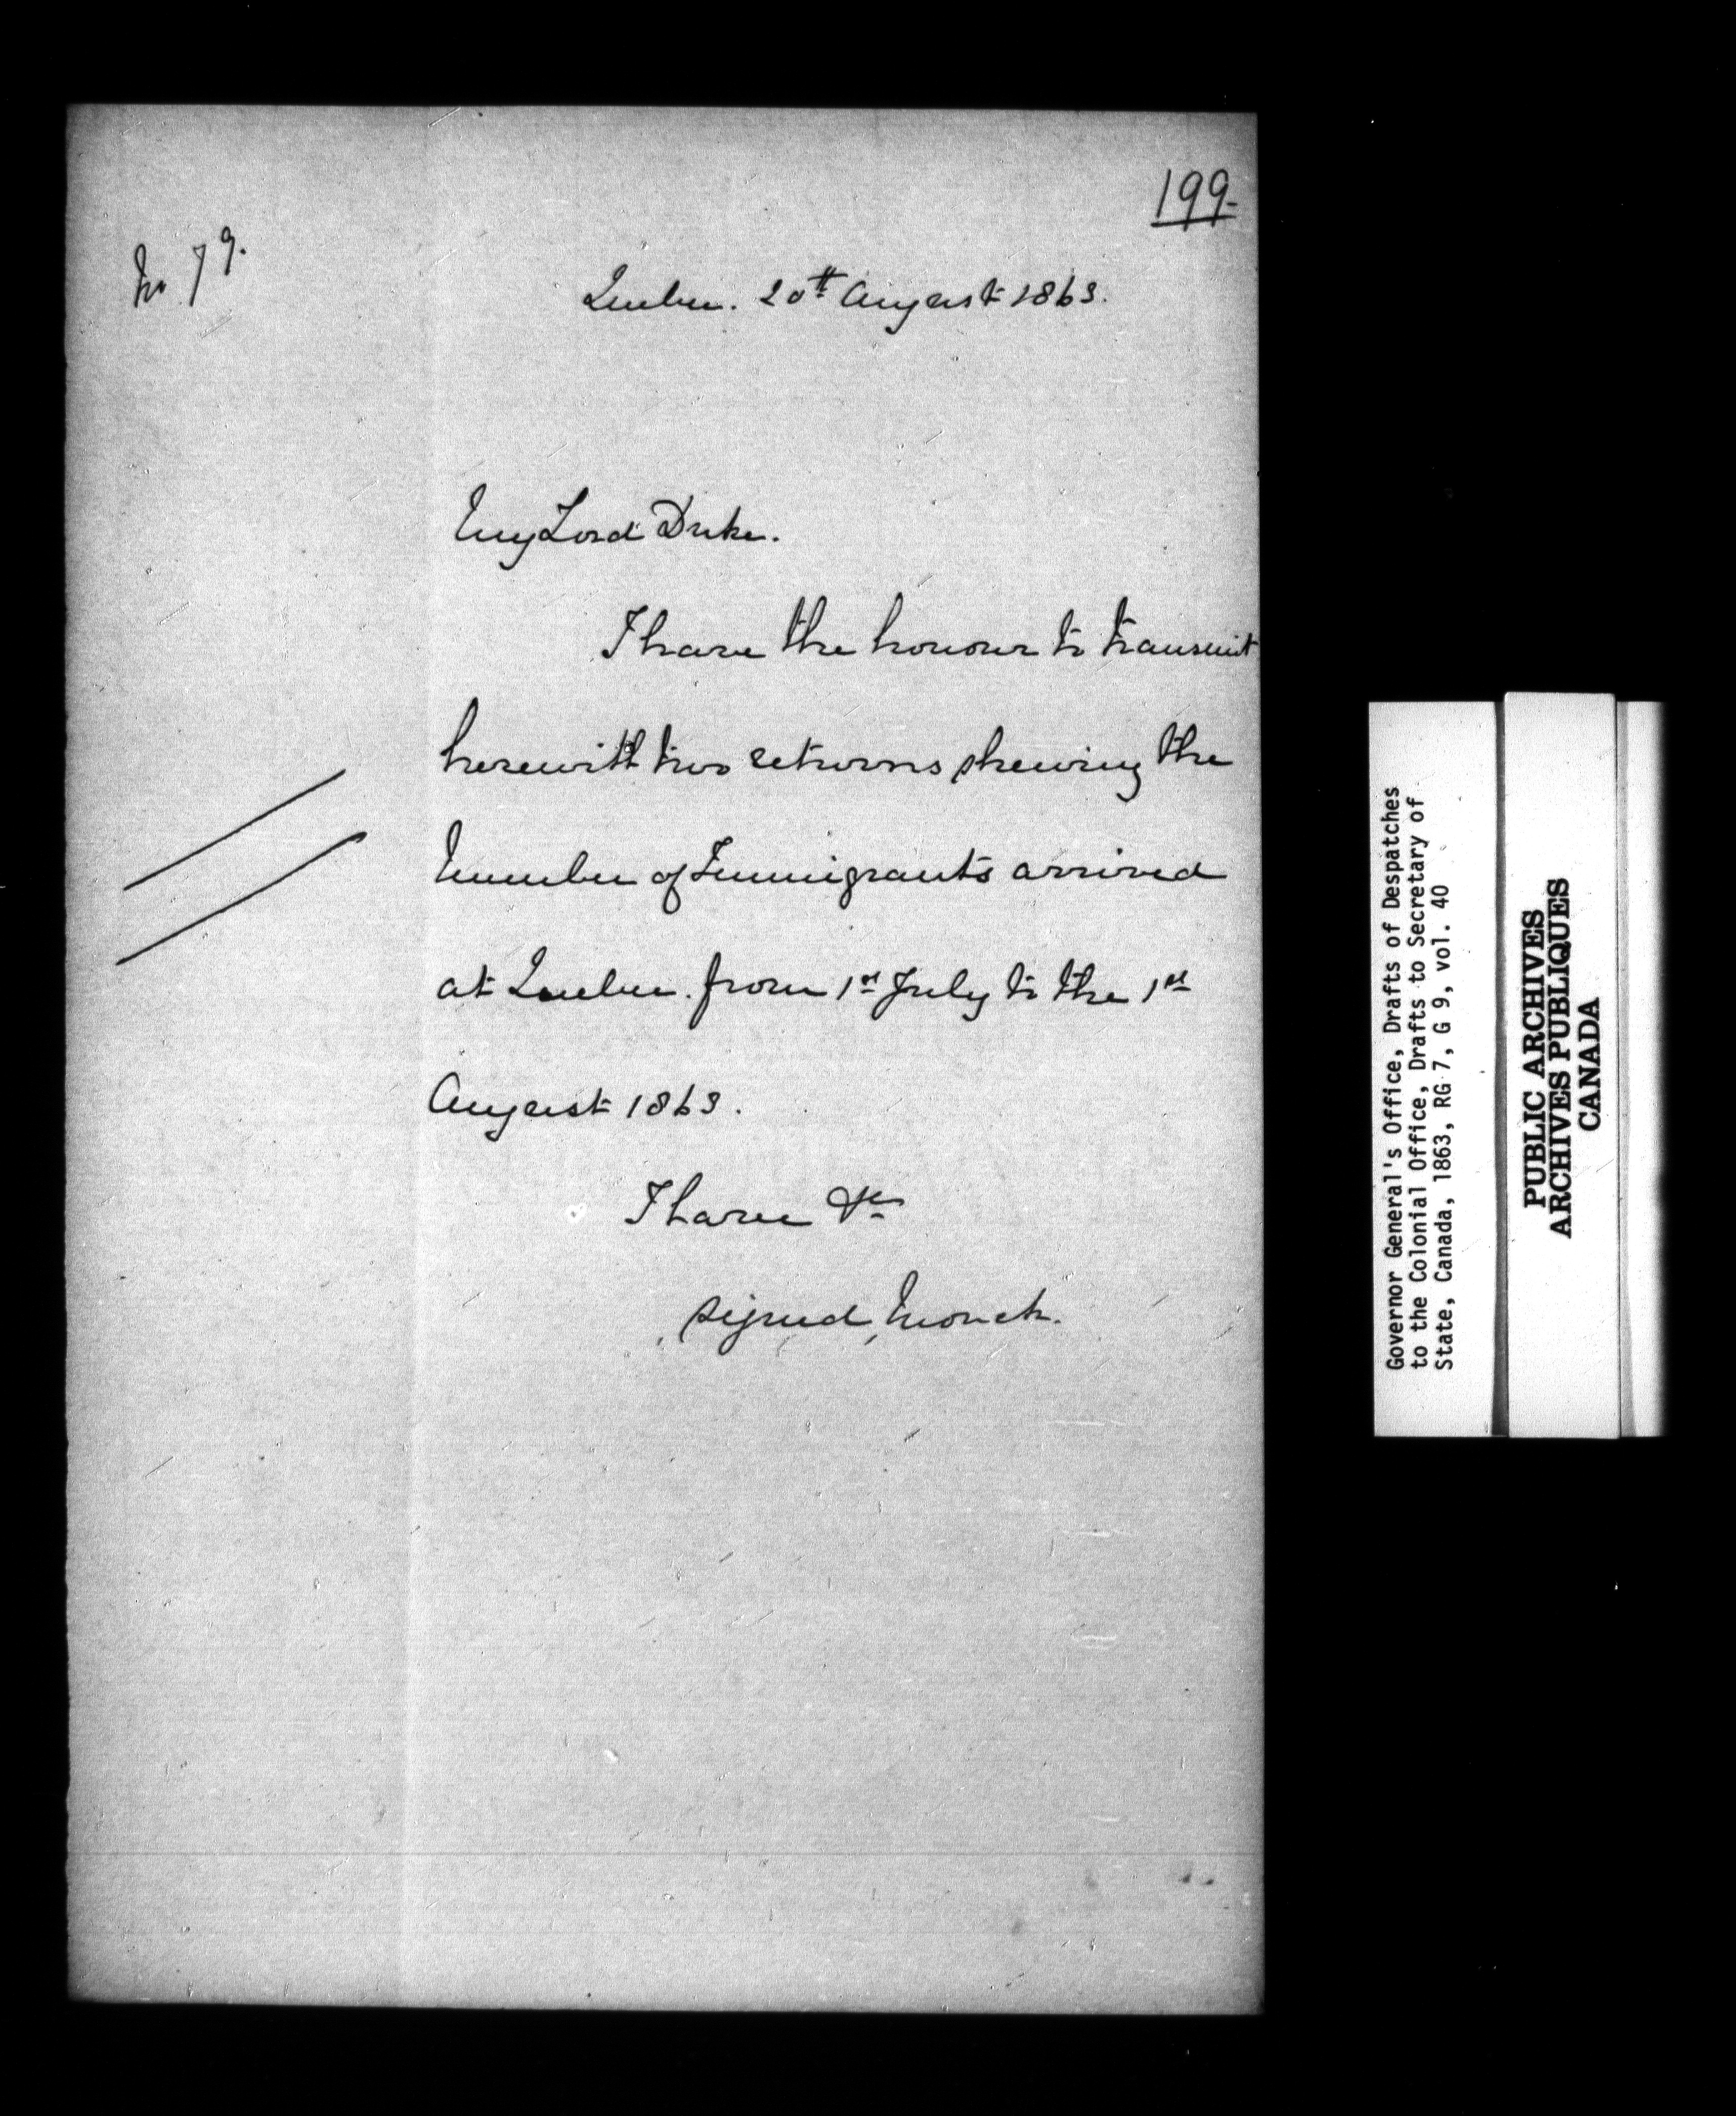 199-
No 79.
Quebec. 20th August 1863.
My Lord Duke.
I have the honour to transmit
herewith two returns shewing the
Number of Immigrants arrived
at Quebec. from 1st July to the 1st
August 1863.
I have &c
signed, Monck.
Governor General's Office, Drafts of Despatches
to the Colonial Office, Drafts to Secretary of
State, Canada, 1863, RG 7, G 9, vol. 40
PUBLIC ARCHIVES
ARCHIVES PUBLIQUES
CANADA